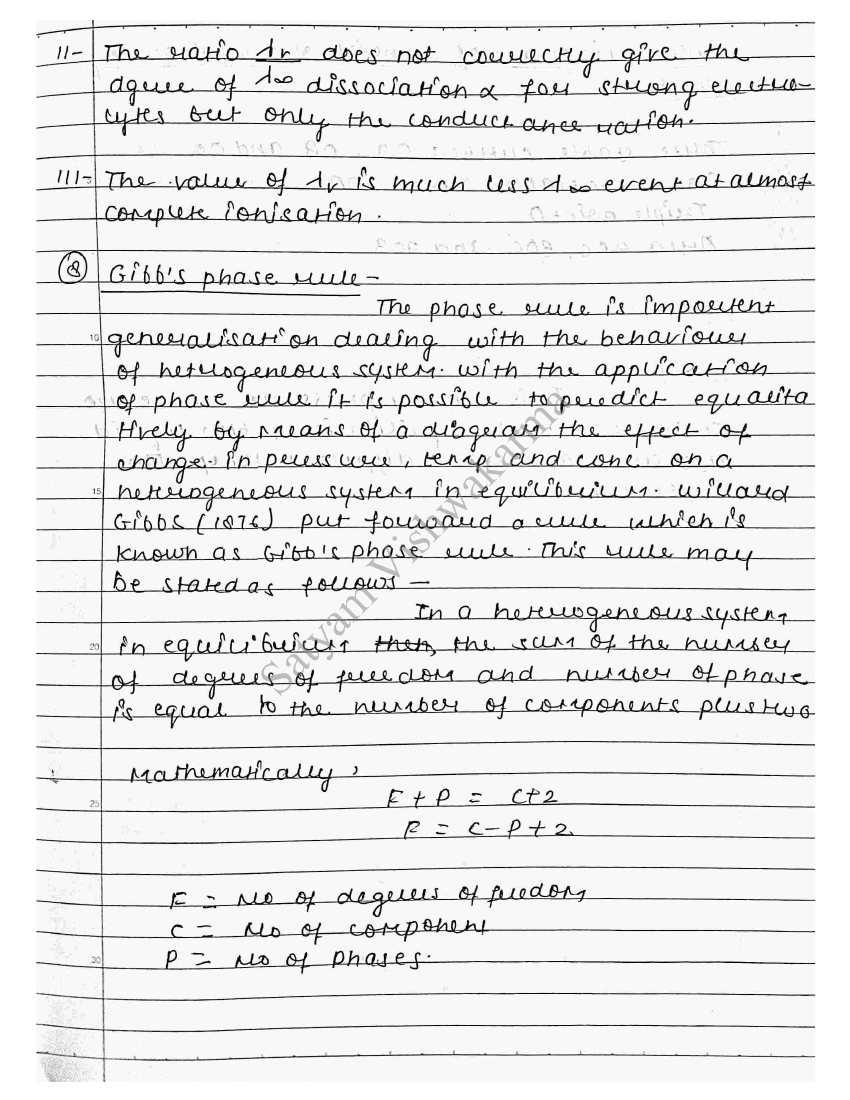 11- The ratio λv does not correctly give the
dgree of λ∞ dissociation α for strong electro-
lytes but only the conduct ance ration.
111- The value of λv is much less λ∞ event at almost
complete ionisation.
8 Gibb's phase rule -
The phase rule is importent
10 generalisation dealing with the behaviour
of hetrogeneous system. with the application
of phase rule it is possible to predict equalita
tively by means of a diagram the effect of
change in pressure, temp and conc on a
15 heterogeneous system in equilibrium. Willard
Gibbs (1876) put forward a rule which is
known as Gibb's phase rule. This rule may
be stated as follows -
In a heterogeneous system
20 in equilibrium then, the sum of the number
of degrees of freedom and number of phase
is equal to the number of components plus two
Mathematically,
25 F + P = C+2
F = C-P+2.
F = No of degrees of freedom
C = No of component
30 P = No of phases.
Satyam Vishwakarma